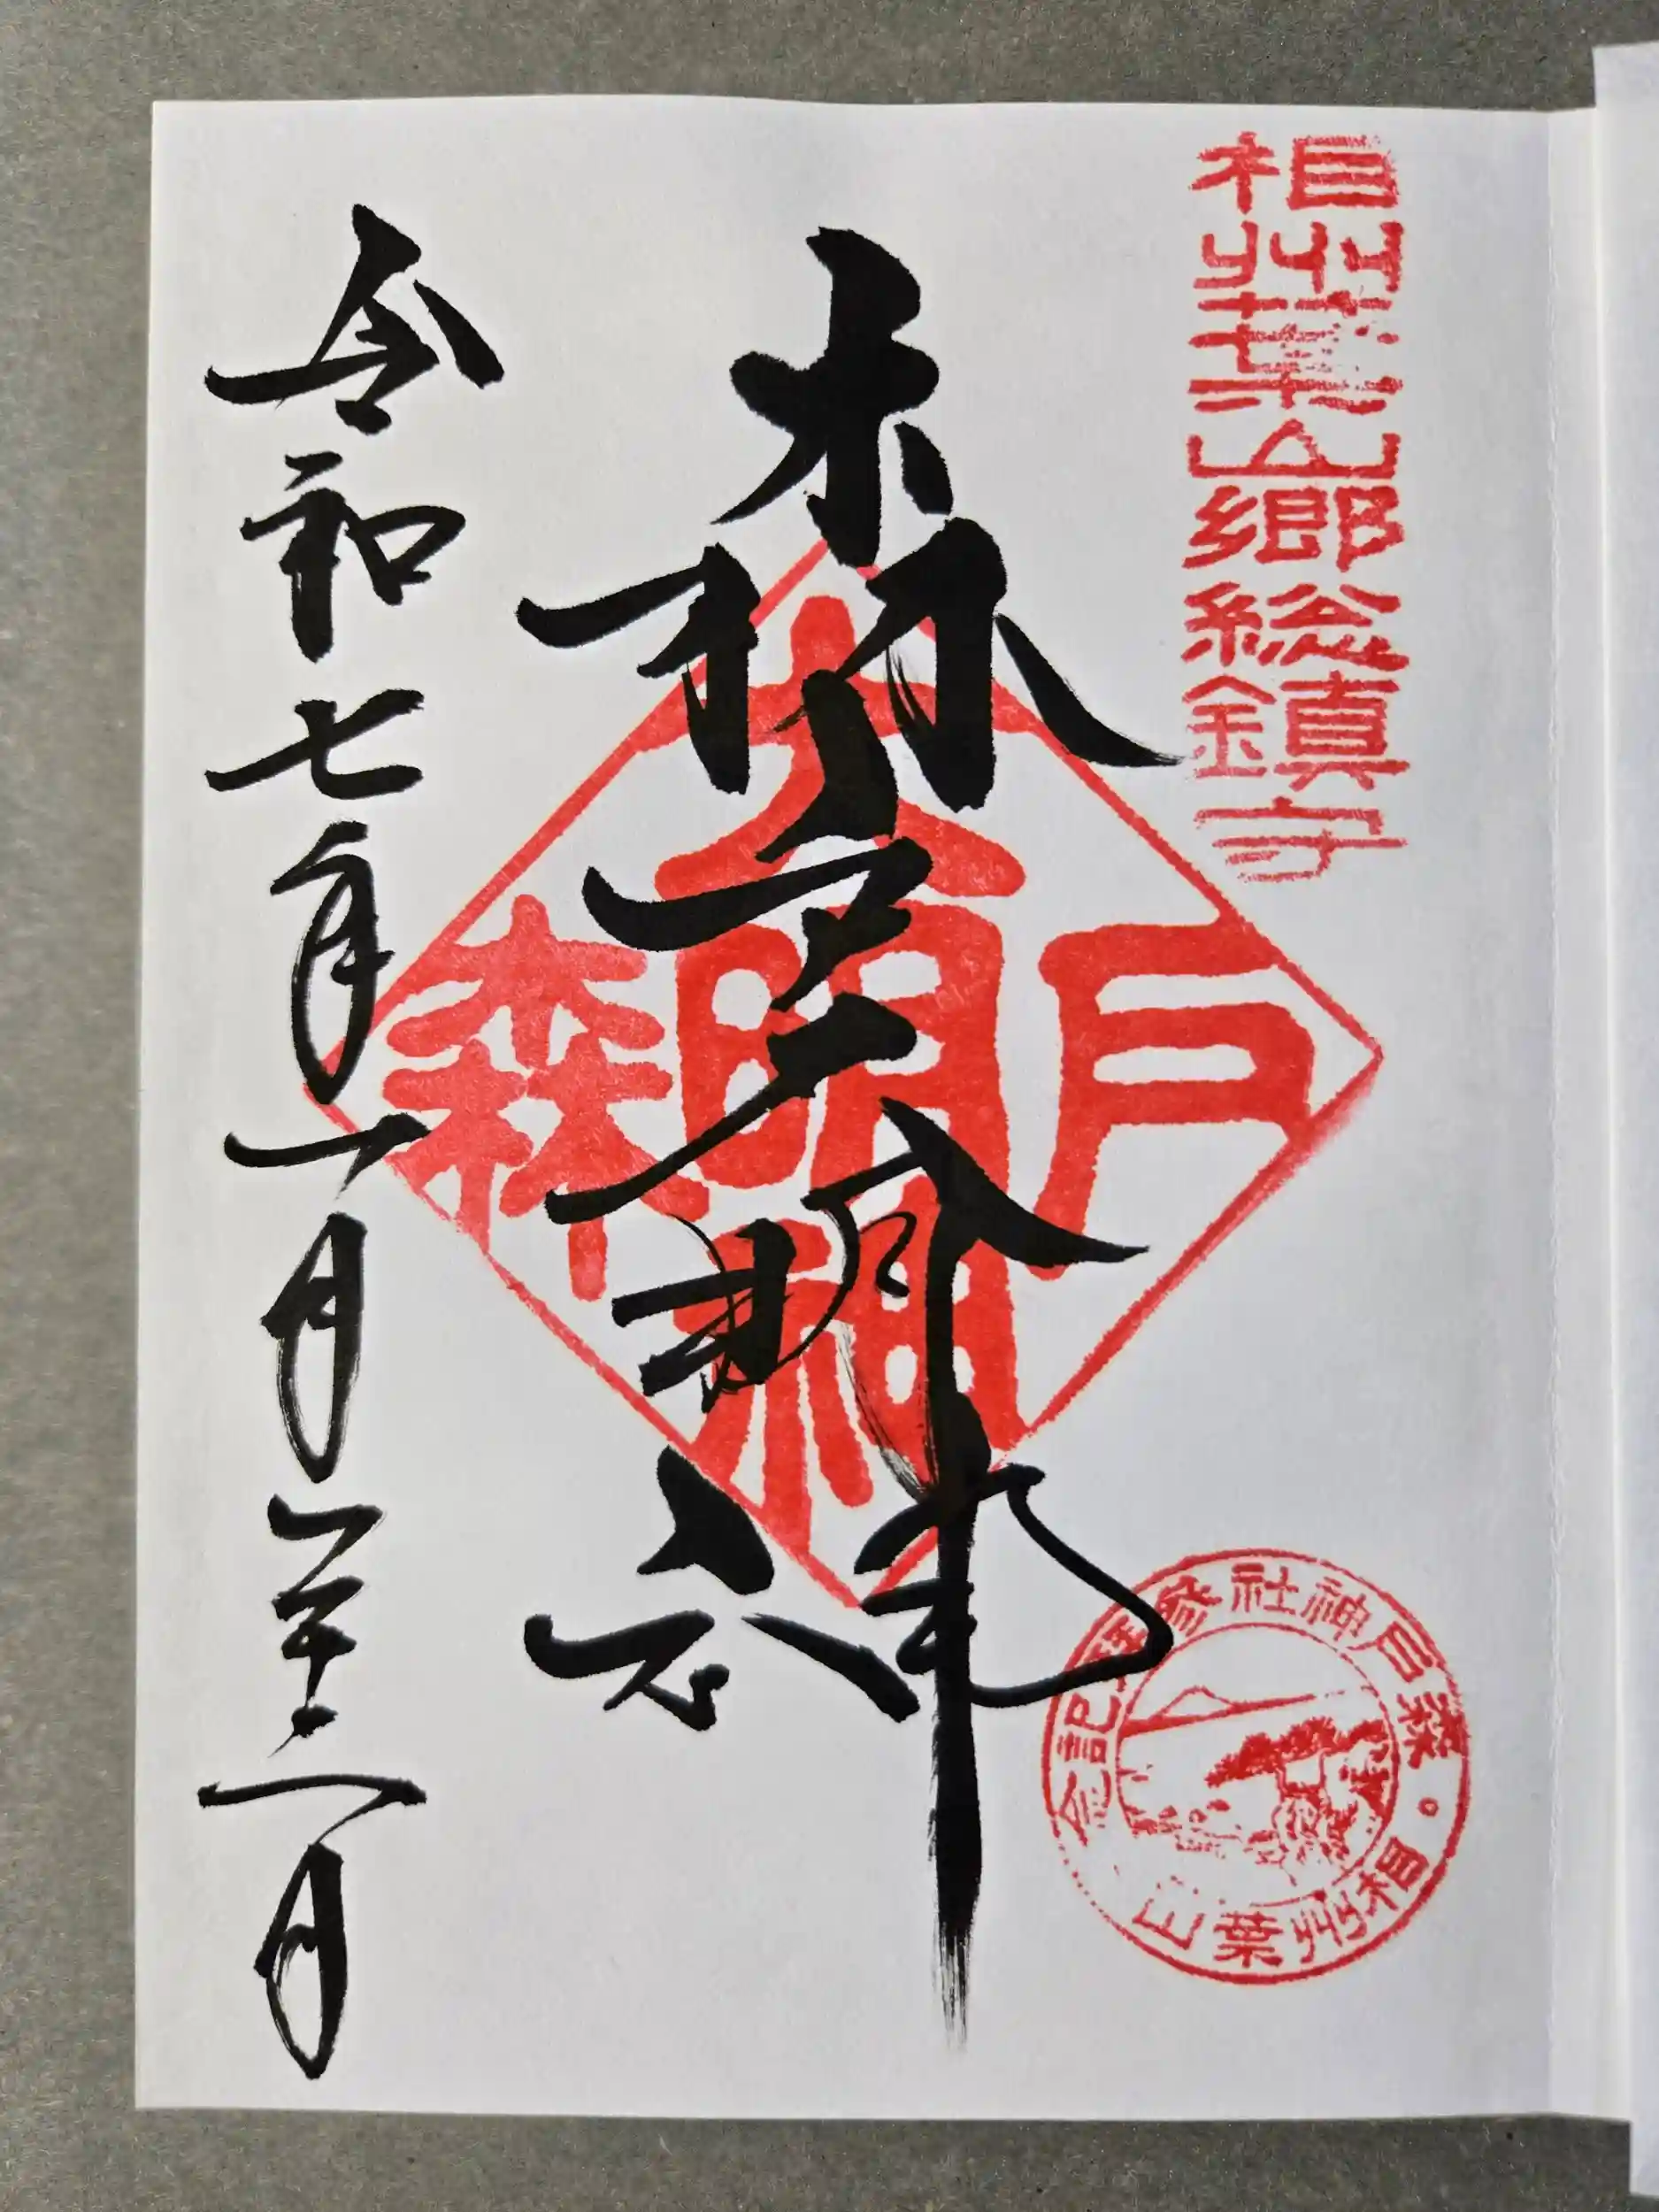 相州葉山郷総鎮守
森戸大明神
令和七年一月二十二日
森戸
大明神
森戸神社参拝記念
相州葉山